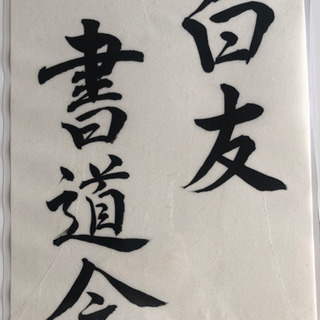 白友
書道会